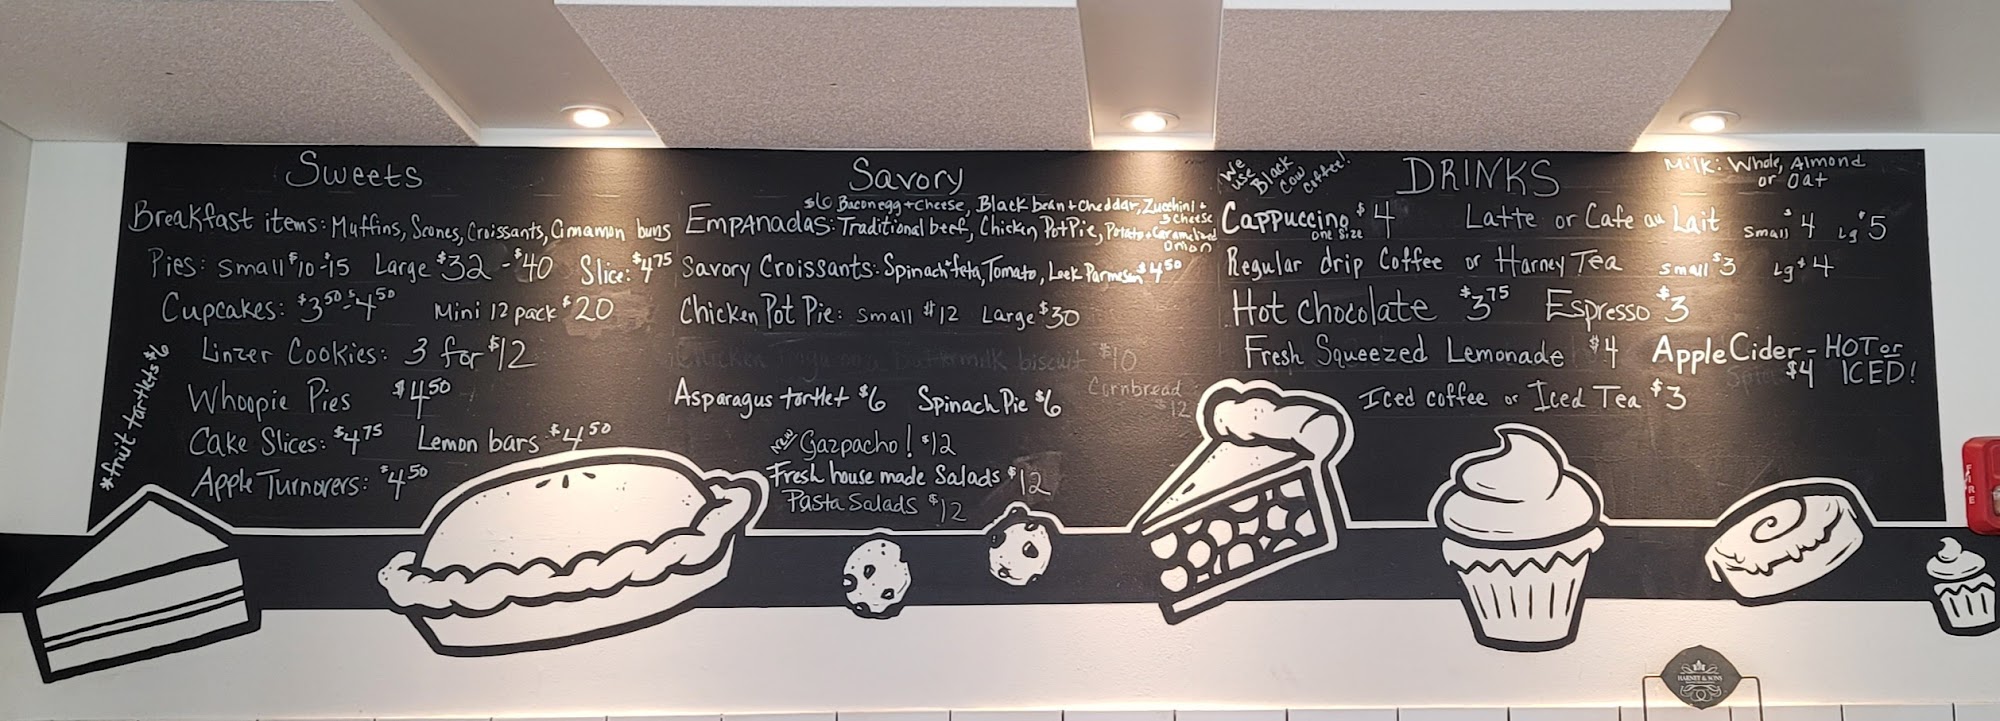 Sweets
Breakfast items: Muffins, Scones, Croissants, Cinnamon buns
Pies: Small $10-$15 Large $32 - $40 Slice: $4.75
Cupcakes: $3.50-$4.50 Mini 12 pack $20
Linzer Cookies: 3 for $12
Whoopie Pies $4.50
Cake Slices: $4.75 Lemon bars $4.50
Apple Turnovers: $4.50
*fruit tartlets $6
Savory
$6 Bacon egg + Cheese, Black bean + Cheddar, Zucchini + 3 Cheese
Empanadas: Traditional beef, Chicken Pot Pie, Potato + Caramelized Onion
Savory Croissants: Spinach + feta, Tomato, Leek Parmesan $4.50
Chicken Pot Pie: Small #12 Large $30
buttermilk biscuit $10
Asparagus tartlet $6 Spinach Pie $6
Cornbread $12
New Gazpacho! $12
Fresh house made Salads $12
Pasta Salads $12
We use Black Cow Coffee!
DRINKS
Milk: Whole, Almond
or Oat
Cappuccino $4 Latte or Cafe au Lait Small $4 Lg $5
One Size
Regular drip Coffee or Harney Tea Small $3 Lg $4
Hot Chocolate $3.75 Espresso $3
Fresh Squeezed Lemonade $4 Apple Cider - HOT or
$4 ICED!
Iced coffee or Iced Tea $3
FIRE
HARNEY & SONS